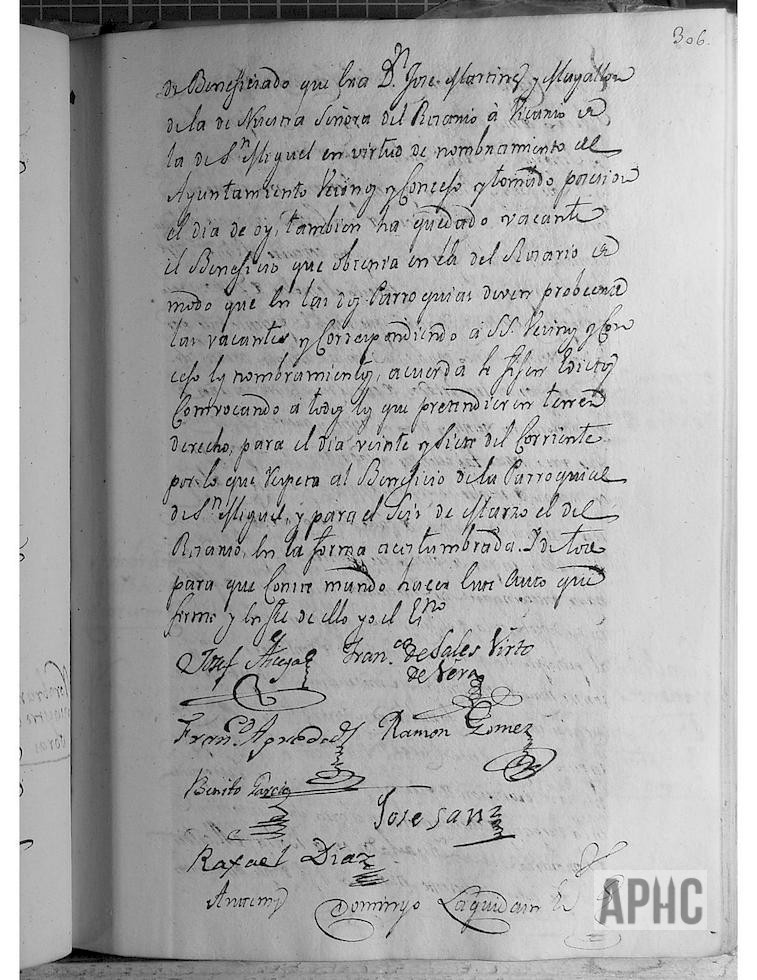 306.
de Beneficiado que hera Dn. Jose Martinez y Magallon
de la de Nuestra Señora del Rosario à Vicario de
la de Sn. Miguel en virtud de nombramiento del
Ayuntamiento Veging y Concejo y tomado posesion
el dia de oy, tambien ha quedado vacante
el Beneficio que obtenia en la del Rosario de
modo que en las dos Parroquias deven probeerse
las vacantes y Correspondiendo à SS. y Con
cejo los nombramientos, acuerda se fijen Edictos
Combocando à todos los que pretendieren tener
derecho, para el dia veinte y siete del Corriente
por lo que respeta al Beneficio de la Parroquial
de Sn. Miguel, y para el Seis de Marzo el del
Rosario, en la forma acostumbrada. Y de todo
para que Conste mando hacer este Auto que
firmo y en fee de ello yo el Essno
Josef Fran.co de Sales Virto
de Vera
Fran.co Ramon Gomez
Benito Garcia
Jose Sanz
Rafael Diaz
Antemi
Domingo Laquidain Es
APHC